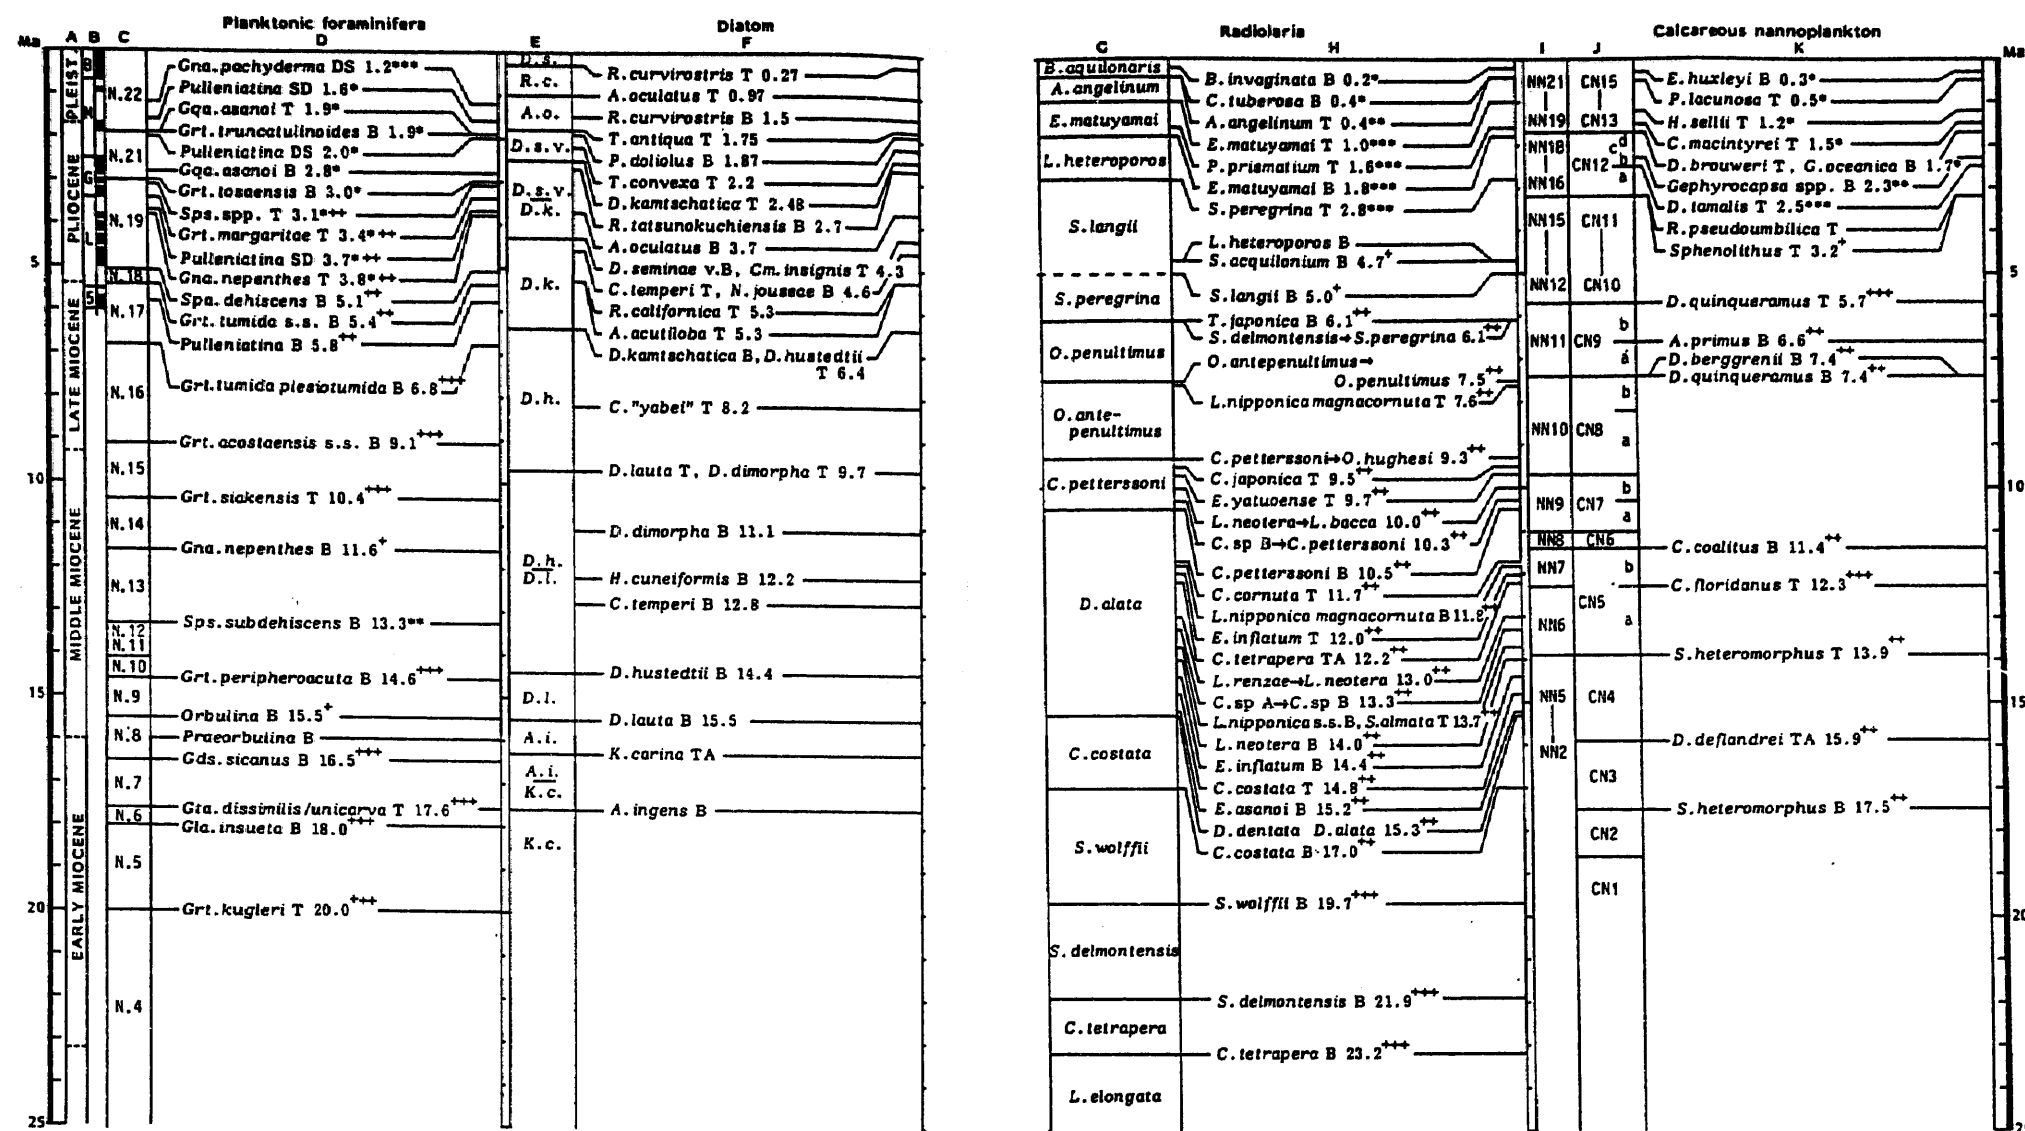 Planktonic foraminifera
Diatom
Radiolaria
Calcareous nannoplankton
Ma A B C D E F
G H I J K Ma
PLEIST
PLIOCENE
LATE MIOCENE
MIDDLE MIOCENE
EARLY MIOCENE
5
10
15
20
25
B
M
G
L
5
N.22
N.21
N.19
N.18
N.17
N.16
N.15
N.14
N.13
N.12
N.11
N.10
N.9
N.8
N.7
N.6
N.5
N.4
Gna.pachyderma DS 1.2***
Pulleniatina SD 1.6*
Gqa.asanoi T 1.9*
Grt.truncatulinoides B 1.9*
Pulleniatina DS 2.0*
Gqa.asanoi B 2.8*
Grt.tosaensis B 3.0*
Sps.spp. T 3.1*++
Grt.margaritae T 3.4*++
Pulleniatina SD 3.7*++
Gna.nepenthes T 3.8*++
Spa.dehiscens B 5.1++
Grt.tumida s.s. B 5.4++
Pulleniatina B 5.8++
Grt.tumida plesiotumida B 6.8+++
Grt.acostaensis s.s. B 9.1+++
Grt.siakensis T 10.4+++
Gna.nepenthes B 11.6+
Sps.subdehiscens B 13.3**
Grt.peripheroacuta B 14.6+++
Orbulina B 15.5+
Praeorbulina B
Gds.sicanus B 16.5+++
Gta.dissimilis/unicarva T 17.6+++
Gla.insueta B 18.0+++
Grt.kugleri T 20.0+++
D.s.
R.c.
A.o.
D.s.v.
D.s.v.
D.k.
D.k.
D.h.
D.h.
D.l.
D.l.
A.i.
A.i.
K.c.
K.c.
R.curvirostris T 0.27
A.oculatus T 0.97
R.curvirostris B 1.5
T.antiqua T 1.75
P.doliolus B 1.87
T.convexa T 2.2
D.kamtschatica T 2.48
R.tatsunokuchiensis B 2.7
A.oculatus B 3.7
D.seminae v.B, Cm.insignis T 4.3
C.temperi T, N.jouseae B 4.6
R.californica T 5.3
A.acutiloba T 5.3
D.kamtschatica B, D.hustedtii
T 6.4
C."yabei" T 8.2
D.lauta T, D.dimorpha T 9.7
D.dimorpha B 11.1
H.cuneiformis B 12.2
C.temperi B 12.8
D.hustedtii B 14.4
D.lauta B 15.5
K.carina TA
A.ingens B
B.aquilonaris
A.angelinum
E.matuyamai
L.heteroporos
S.langii
S.peregrina
O.penultimus
O.ante-
penultimus
C.pettersSoni
D.alata
C.costata
S.wolffii
S.delmontensis
C.tetrapera
L.elongata
B.invaginata B 0.2*
C.tuberosa B 0.4*
A.angelinum T 0.4**
E.matuyamai T 1.0***
P.prismatium T 1.6***
E.matuyamai B 1.8***
S.peregrina T 2.8***
L.heteroporos B
S.acquilonium B 4.7+
S.langii B 5.0+
T.japonica B 6.1++
S.delmontensis→S.peregrina 6.1++
O.antepenultimus→
O.penultimus 7.5++
L.nipponica magnacornuta T 7.6++
C.petterssoni→O.hughesi 9.3++
C.japonica T 9.5++
E.yatuoense T 9.7++
L.neotera→L.bacca 10.0++
C.sp B→C.petterssoni 10.3++
C.petterssoni B 10.5++
C.cornuta T 11.7++
L.nipponica magnacornuta B 11.8++
E.inflatum T 12.0++
C.tetrapera TA 12.2++
L.renzae→L.neotera 13.0++
C.sp A→C.sp B 13.3++
L.nipponica s.s.B, S.almata T 13.7++
L.neotera B 14.0++
E.inflatum B 14.4++
C.costata T 14.8++
E.asanoi B 15.2++
D.dentata D.alata 15.3++
C.costata B 17.0++
S.wolffii B 19.7+++
S.delmontensis B 21.9+++
C.tetrapera B 23.2+++
NN21
NN19
NN18
NN16
NN15
NN12
NN11
NN10
NN9
NN8
NN7
NN6
NN5
NN2
CN15
CN13
CN12
d
c
b
a
CN11
CN10
CN9
b
a
CN8
b
a
CN7
b
a
CN6
CN5
b
a
CN4
CN3
CN2
CN1
E.huxleyi B 0.3*
P.lacunosa T 0.5*
H.sellii T 1.2*
C.macintyrei T 1.5*
D.brouweri T, G.oceanica B 1.7*
Gephyrocapsa spp. B 2.3**
D.tamalis T 2.5***
R.pseudoumbilica T
Sphenolithus T 3.2+
D.quinqueramus T 5.7+++
A.primus B 6.6++
D.berggrenii B 7.4++
D.quinqueramus B 7.4++
C.coalitus B 11.4++
C.floridanus T 12.3+++
S.heteromorphus T 13.9++
D.deflandrei TA 15.9++
S.heteromorphus B 17.5++
5
10
15
20